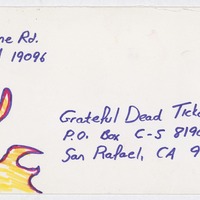 ne Rd.
19096
Grateful Dead Ticke
P.O. Box C-S 8190
San Rafael, CA 9